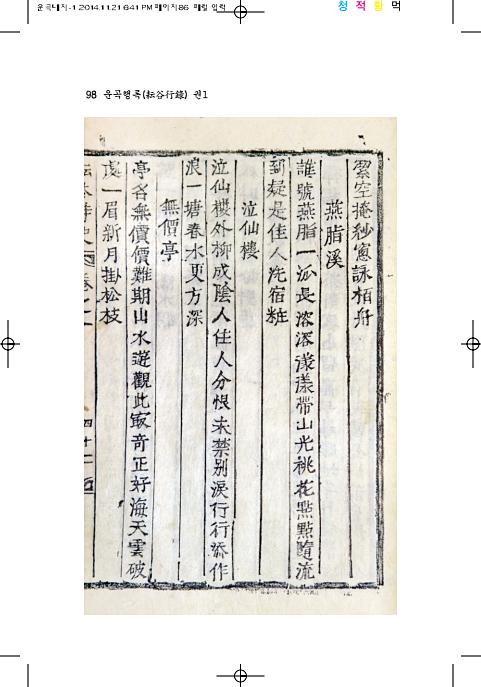 윤곡내지-1 2014.11.21 6:41 PM 페이지86 매킬 입력
청 적 황 먹
98 운곡행록(耘谷行錄) 권1
絜空掩紗窓詠栢舟
燕脂溪
誰號燕脂一派長溶溶漾漾帶山光桃花點點隨流
到疑是佳人洗宿粧
泣仙樓
泣仙樓外柳成陰人住人分恨未禁別淚行行添作
浪一塘春水更方深
無價亭
亭名無價價難期山水遊觀此最奇正好海天雲破
處一眉新月掛松枝